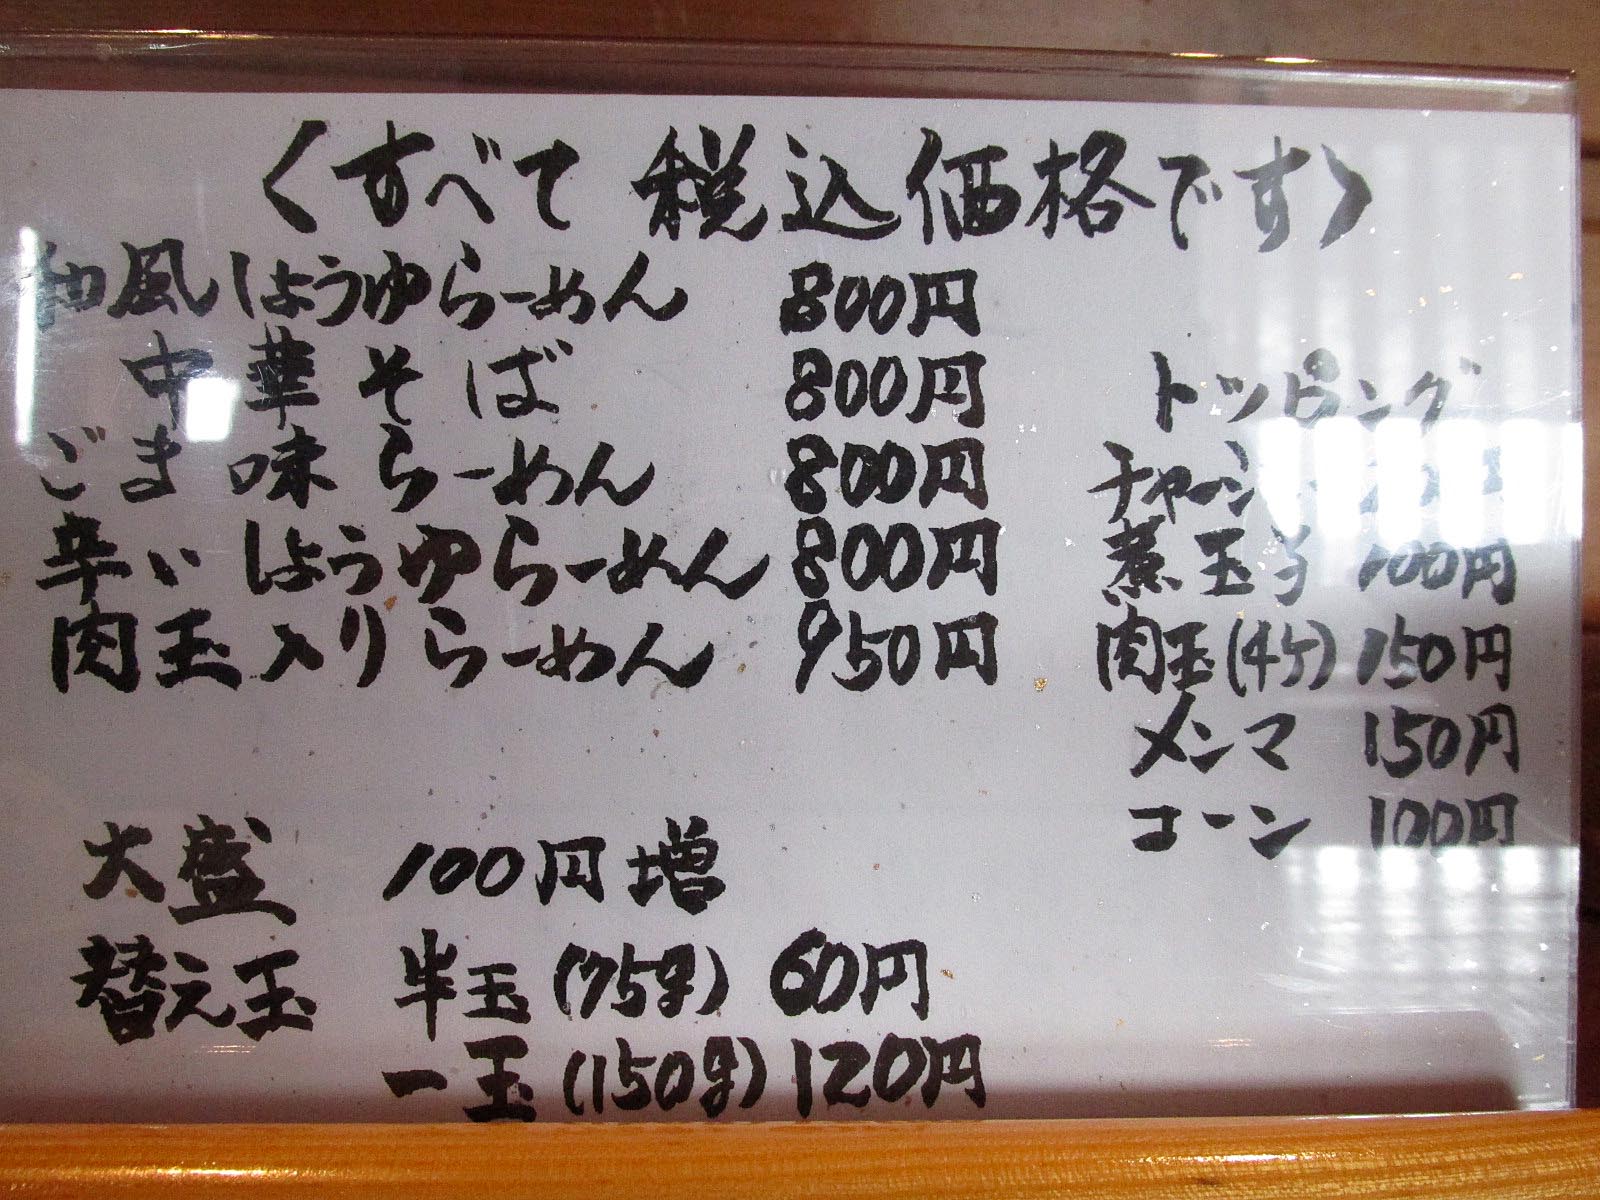 〈すべて税込価格です〉
和風しょうゆらーめん 800円
中華そば 800円
ごま味らーめん 800円
辛いしょうゆらーめん 800円
肉玉入りらーめん 950円
大盛 100円増
替え玉 半玉(75g) 60円
一玉(150g) 120円
トッピング
チャーシュー 円
煮玉子 100円
肉玉(4ケ) 150円
メンマ 150円
コーン 100円